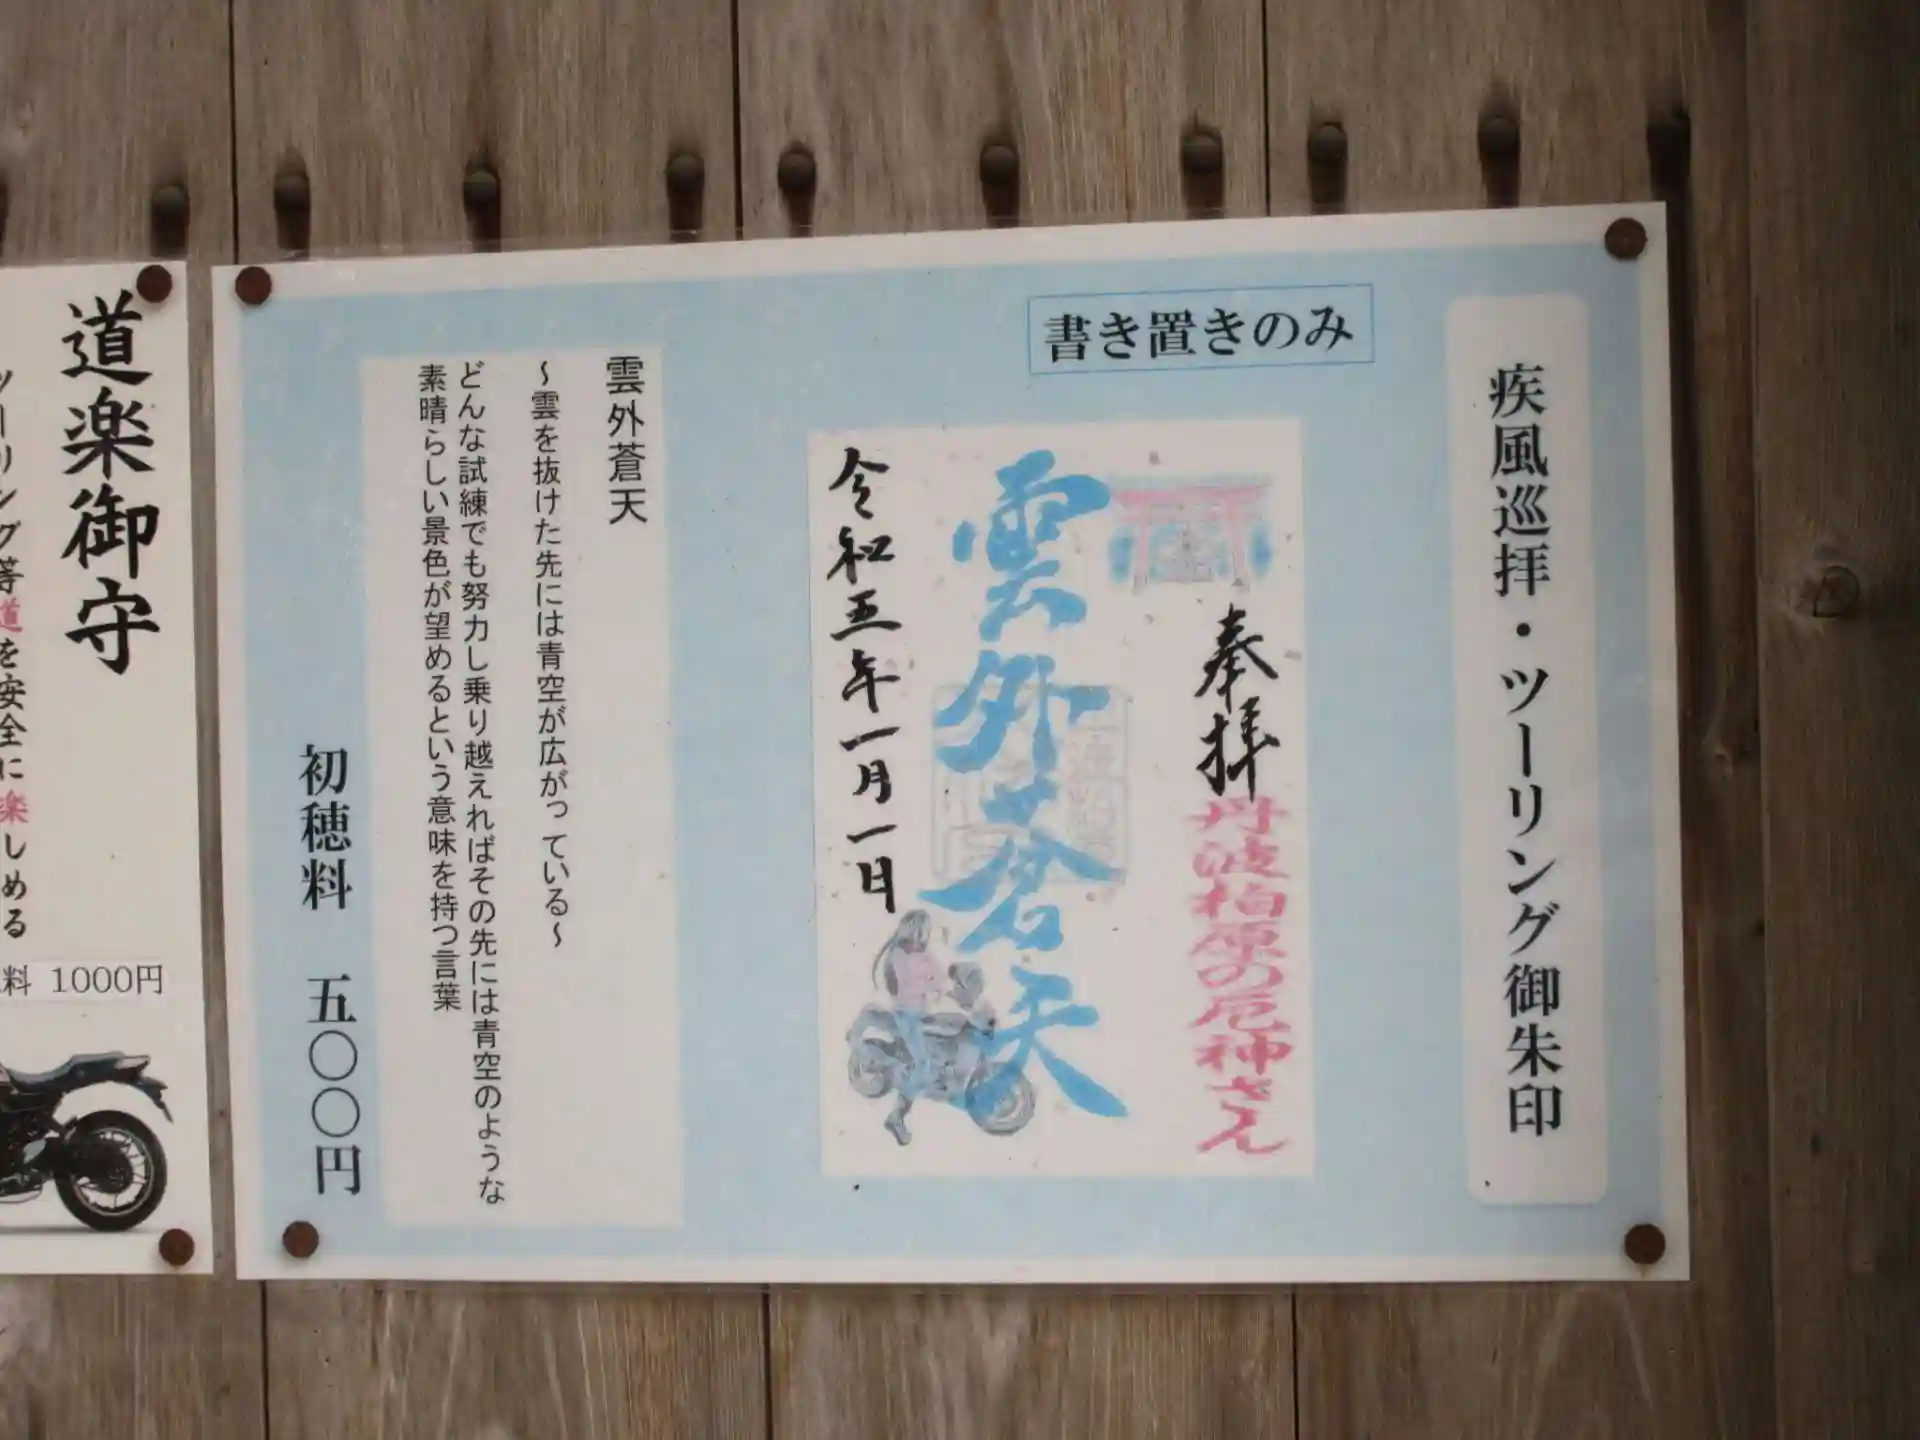 疾風巡拝・ツーリング御朱印
書き置きのみ
奉拝
丹波柏原の厄神さん
雲外蒼天
令和五年一月一日
雲外蒼天
～雲を抜けた先には青空が広がっている～
どんな試練でも努力し乗り越えればその先には青空のような
素晴らしい景色が望めるという意味を持つ言葉
初穂料 五〇〇円
道楽御守
ツーリング等道を安全に楽しめる
料 1000円